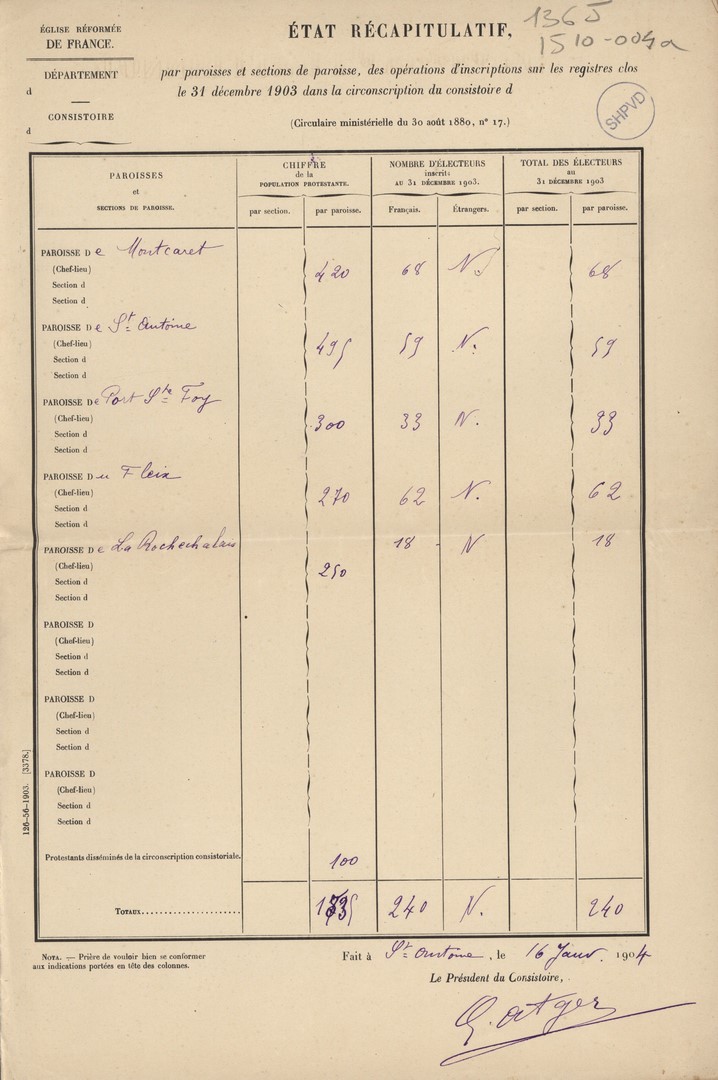 ÉGLISE RÉFORMÉE
DE FRANCE.
DÉPARTEMENT
d
CONSISTOIRE
d
136 J
1510-004a
ÉTAT RÉCAPITULATIF,
par paroisses et sections de paroisse, des opérations d'inscriptions sur les registres clos
le 31 décembre 1903 dans la circonscription du consistoire d
(Circulaire ministérielle du 30 août 1880, n° 17.)
SHPVD
PAROISSES
et
SECTIONS DE PAROISSE.
CHIFFRE
de la
POPULATION PROTESTANTE.
NOMBRE D'ÉLECTEURS
inscrits
AU 31 DÉCEMBRE 1903.
TOTAL DES ÉLECTEURS
au
31 DÉCEMBRE 1903
par section. par paroisse. Français. Étrangers. par section. par paroisse.
PAROISSE De Montcaret
(Chef-lieu) 420 68 N. 68
Section d
Section d
PAROISSE De St Antoine
(Chef-lieu) 495 59 N. 59
Section d
Section d
PAROISSE De Port Ste Foy
(Chef-lieu) 300 33 N. 33
Section d
Section d
PAROISSE Du Fleix
(Chef-lieu) 270 62 N. 62
Section d
Section d
PAROISSE De La Rochechalais 18 - N 18
(Chef-lieu) 250
Section d
Section d
PAROISSE D
(Chef-lieu)
Section d
Section d
PAROISSE D
(Chef-lieu)
Section d
Section d
PAROISSE D
(Chef-lieu)
Section d
Section d
126-56-1903. [3378.]
Protestants disséminés de la circonscription consistoriale. 100
TOTAUX 240 N. 240
NOTA. — Prière de vouloir bien se conformer
aux indications portées en tête des colonnes.
Fait à St Antoine, le 16 Janv. 1904
Le Président du Consistoire,
G. Atger